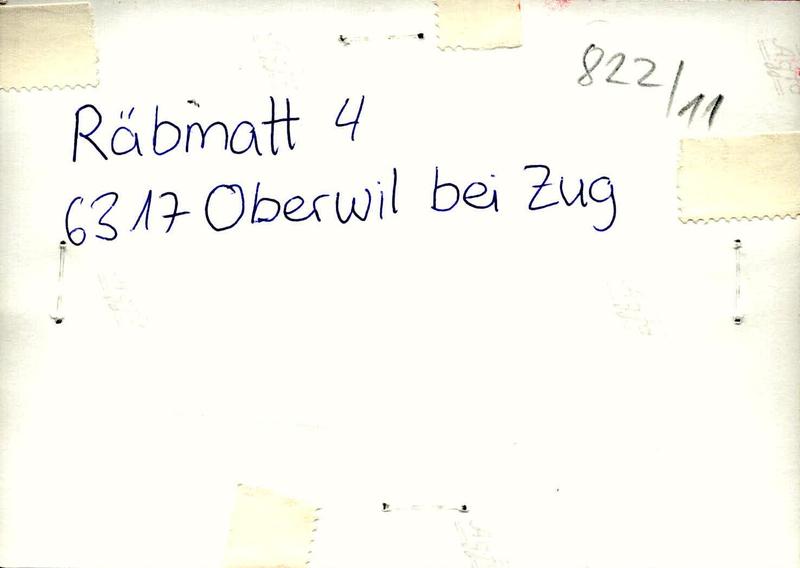 822/11
Räbmatt 4
6317 Oberwil bei Zug